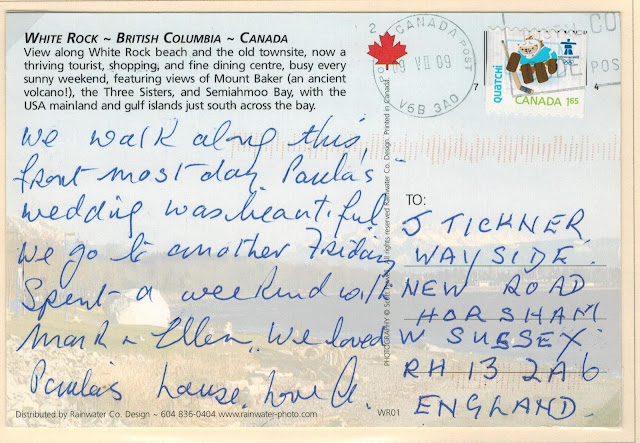 WHITE ROCK ~ BRITISH COLUMBIA ~ CANADA
View along White Rock beach and the old townsite, now a
thriving tourist, shopping, and fine dining centre, busy every
sunny weekend, featuring views of Mount Baker (an ancient
volcano!), the Three Sisters, and Semiahmoo Bay, with the
USA mainland and gulf islands just south across the bay.
We walk along this
front most day. Paula's
wedding was beautiful
We go to another Friday
Spent a weekend with
Mark & Ellen. We loved
Paula's house. Love
Distributed by Rainwater Co. Design ~ 604 836-0404 ~ www.rainwater-photo.com
WR01
All rights reserved Rainwater Co. Design. Printed in Canada.
PHOTOGRAPHY ©
2
CANADA POST
09 VII 09
V6B 3A0
7
4
QUATCHI
CANADA 1.65
POS
TO:
J TICKNER
WAYSIDE.
NEW ROAD
HORSHAM
W SUSSEX
RH13 2A6
ENGLAND.